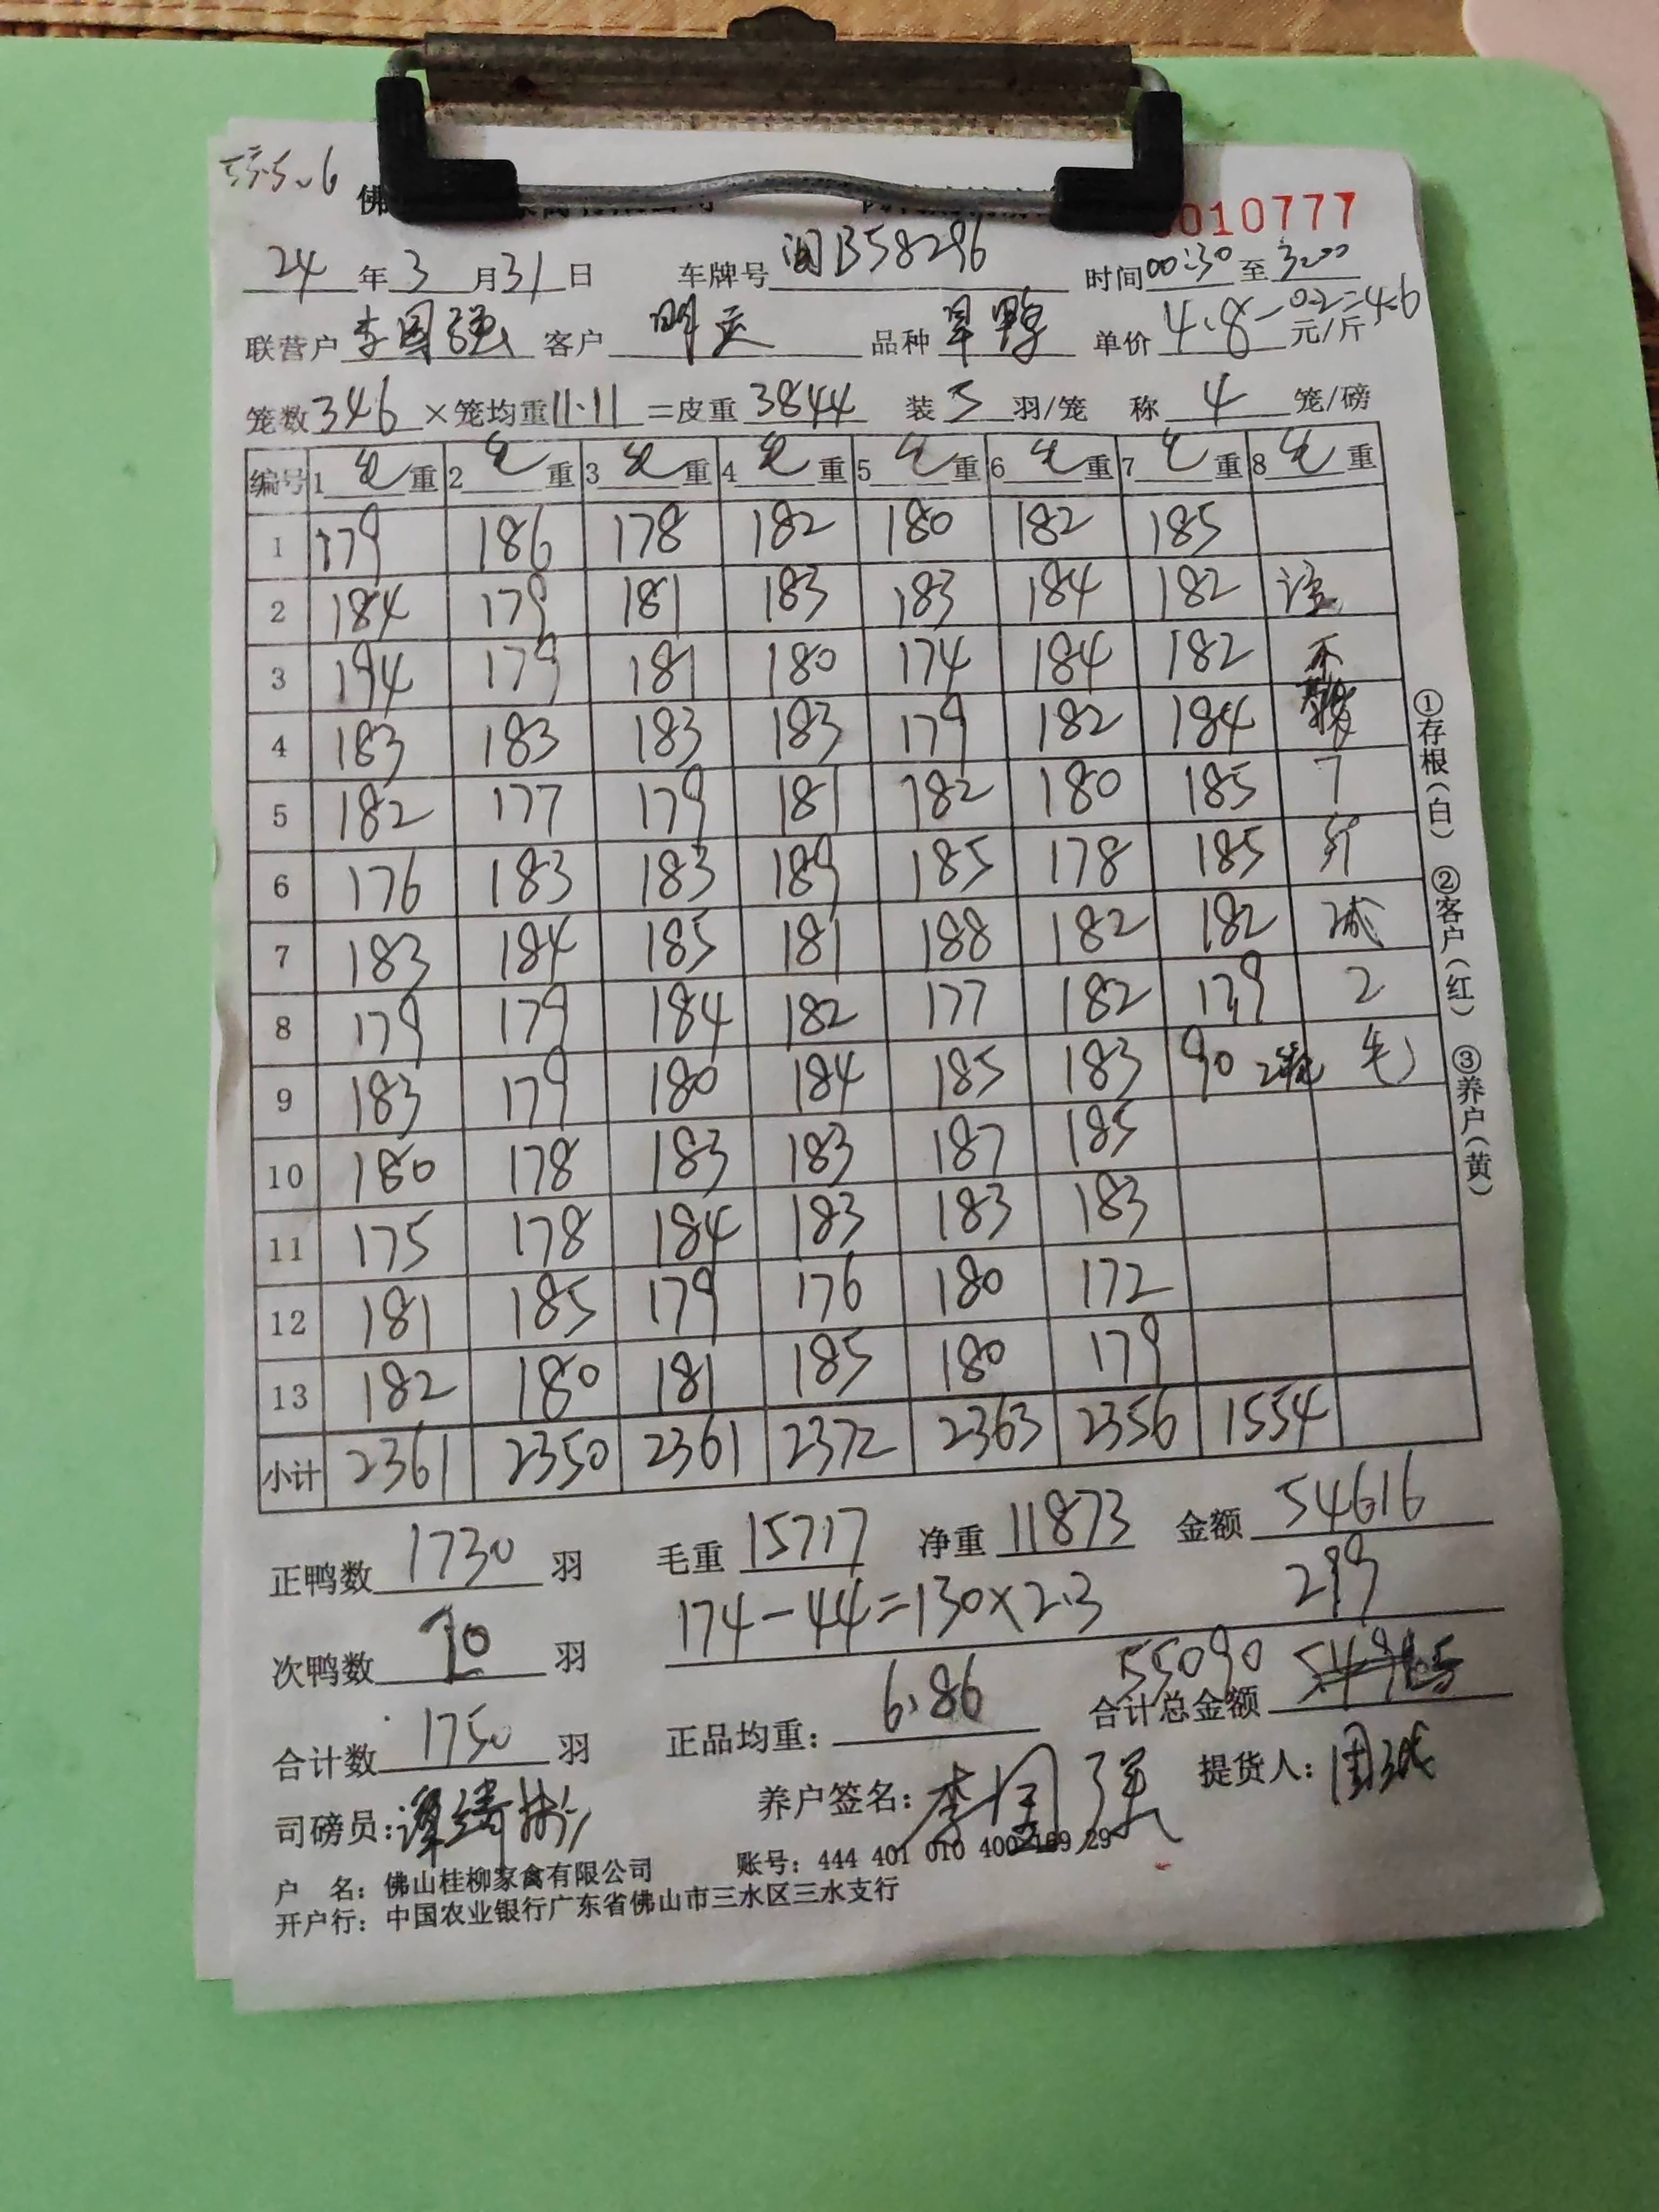 佛
010777
24年3月31日 车牌号闽B58296 时间00:30至3:00
联营户李国强 客户明天 品种旱鸭 单价4.8-0.2=4.6元/斤
笼数346×笼均重11.11=皮重3844 装5羽/笼 称4笼/磅
编号 1毛重 2毛重 3毛重 4毛重 5毛重 6毛重 7毛重 8毛重
1 179 186 178 182 180 182 185
2 184 179 181 183 183 184 182 注
3 194 179 181 180 174 184 182 不
4 183 183 183 183 179 182 184
5 182 177 179 181 182 180 185 7
6 176 183 183 189 185 178 185 斤
7 183 184 185 181 188 182 182 减
8 179 179 184 182 177 182 179 2
9 183 179 180 184 185 183 90 2笼 毛
10 180 178 183 183 187 185
11 175 178 184 183 183 183
12 181 185 179 176 180 172
13 182 180 181 185 180 179
小计 2361 2350 2361 2372 2363 2356 1554
①存根(白) ②客户(红) ③养户(黄)
正鸭数1730羽 毛重15717 净重11873 金额54616
次鸭数20羽 174-44=130×2.3 299
合计数1750羽 正品均重:6.86 合计总金额55090
司磅员: 养户签名:李国强 提货人:周斌
户 名:佛山桂柳家禽有限公司 账号:444 401 010 400 169 29
开户行:中国农业银行广东省佛山市三水区三水支行